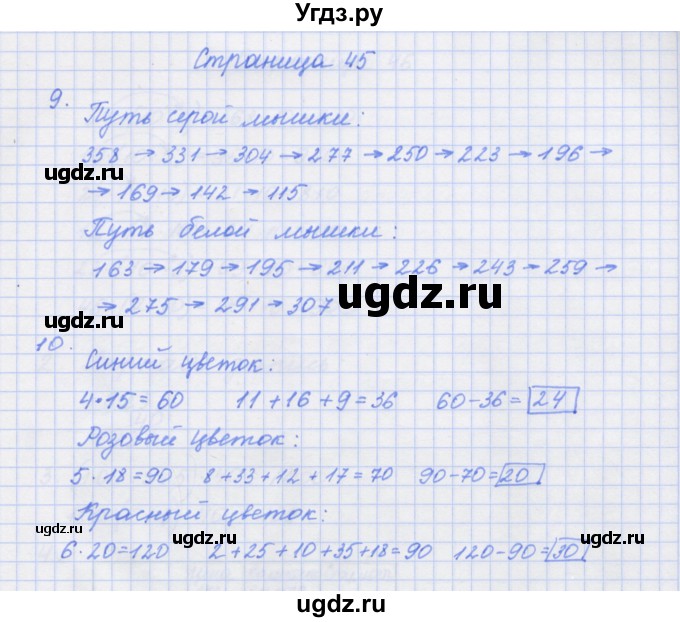 Угдз.ру
Страница 45
9. Путь серой мышки:
358 → 331 → 304 → 277 → 250 → 223 → 196 →
→ 169 → 142 → 115
ugdz.ru
ugdz.ru
Путь белой мышки:
163 → 179 → 195 → 211 → 226 → 243 → 259 →
→ 275 → 291 → 307
ugdz.ru
10. Синий цветок:
4·15 = 60 11 + 16 + 9 = 36 60 - 36 = 24
ugdz.ru
Розовый цветок:
5 · 18 = 90 8 + 33 + 12 + 17 = 70 90 - 70 = 20
ugdz.ru
Красный цветок:
6 · 20 = 120 2 + 25 + 10 + 35 + 18 = 90 120 - 90 = 30
ugdz.ru
ugdz.ru
ugdz.ru